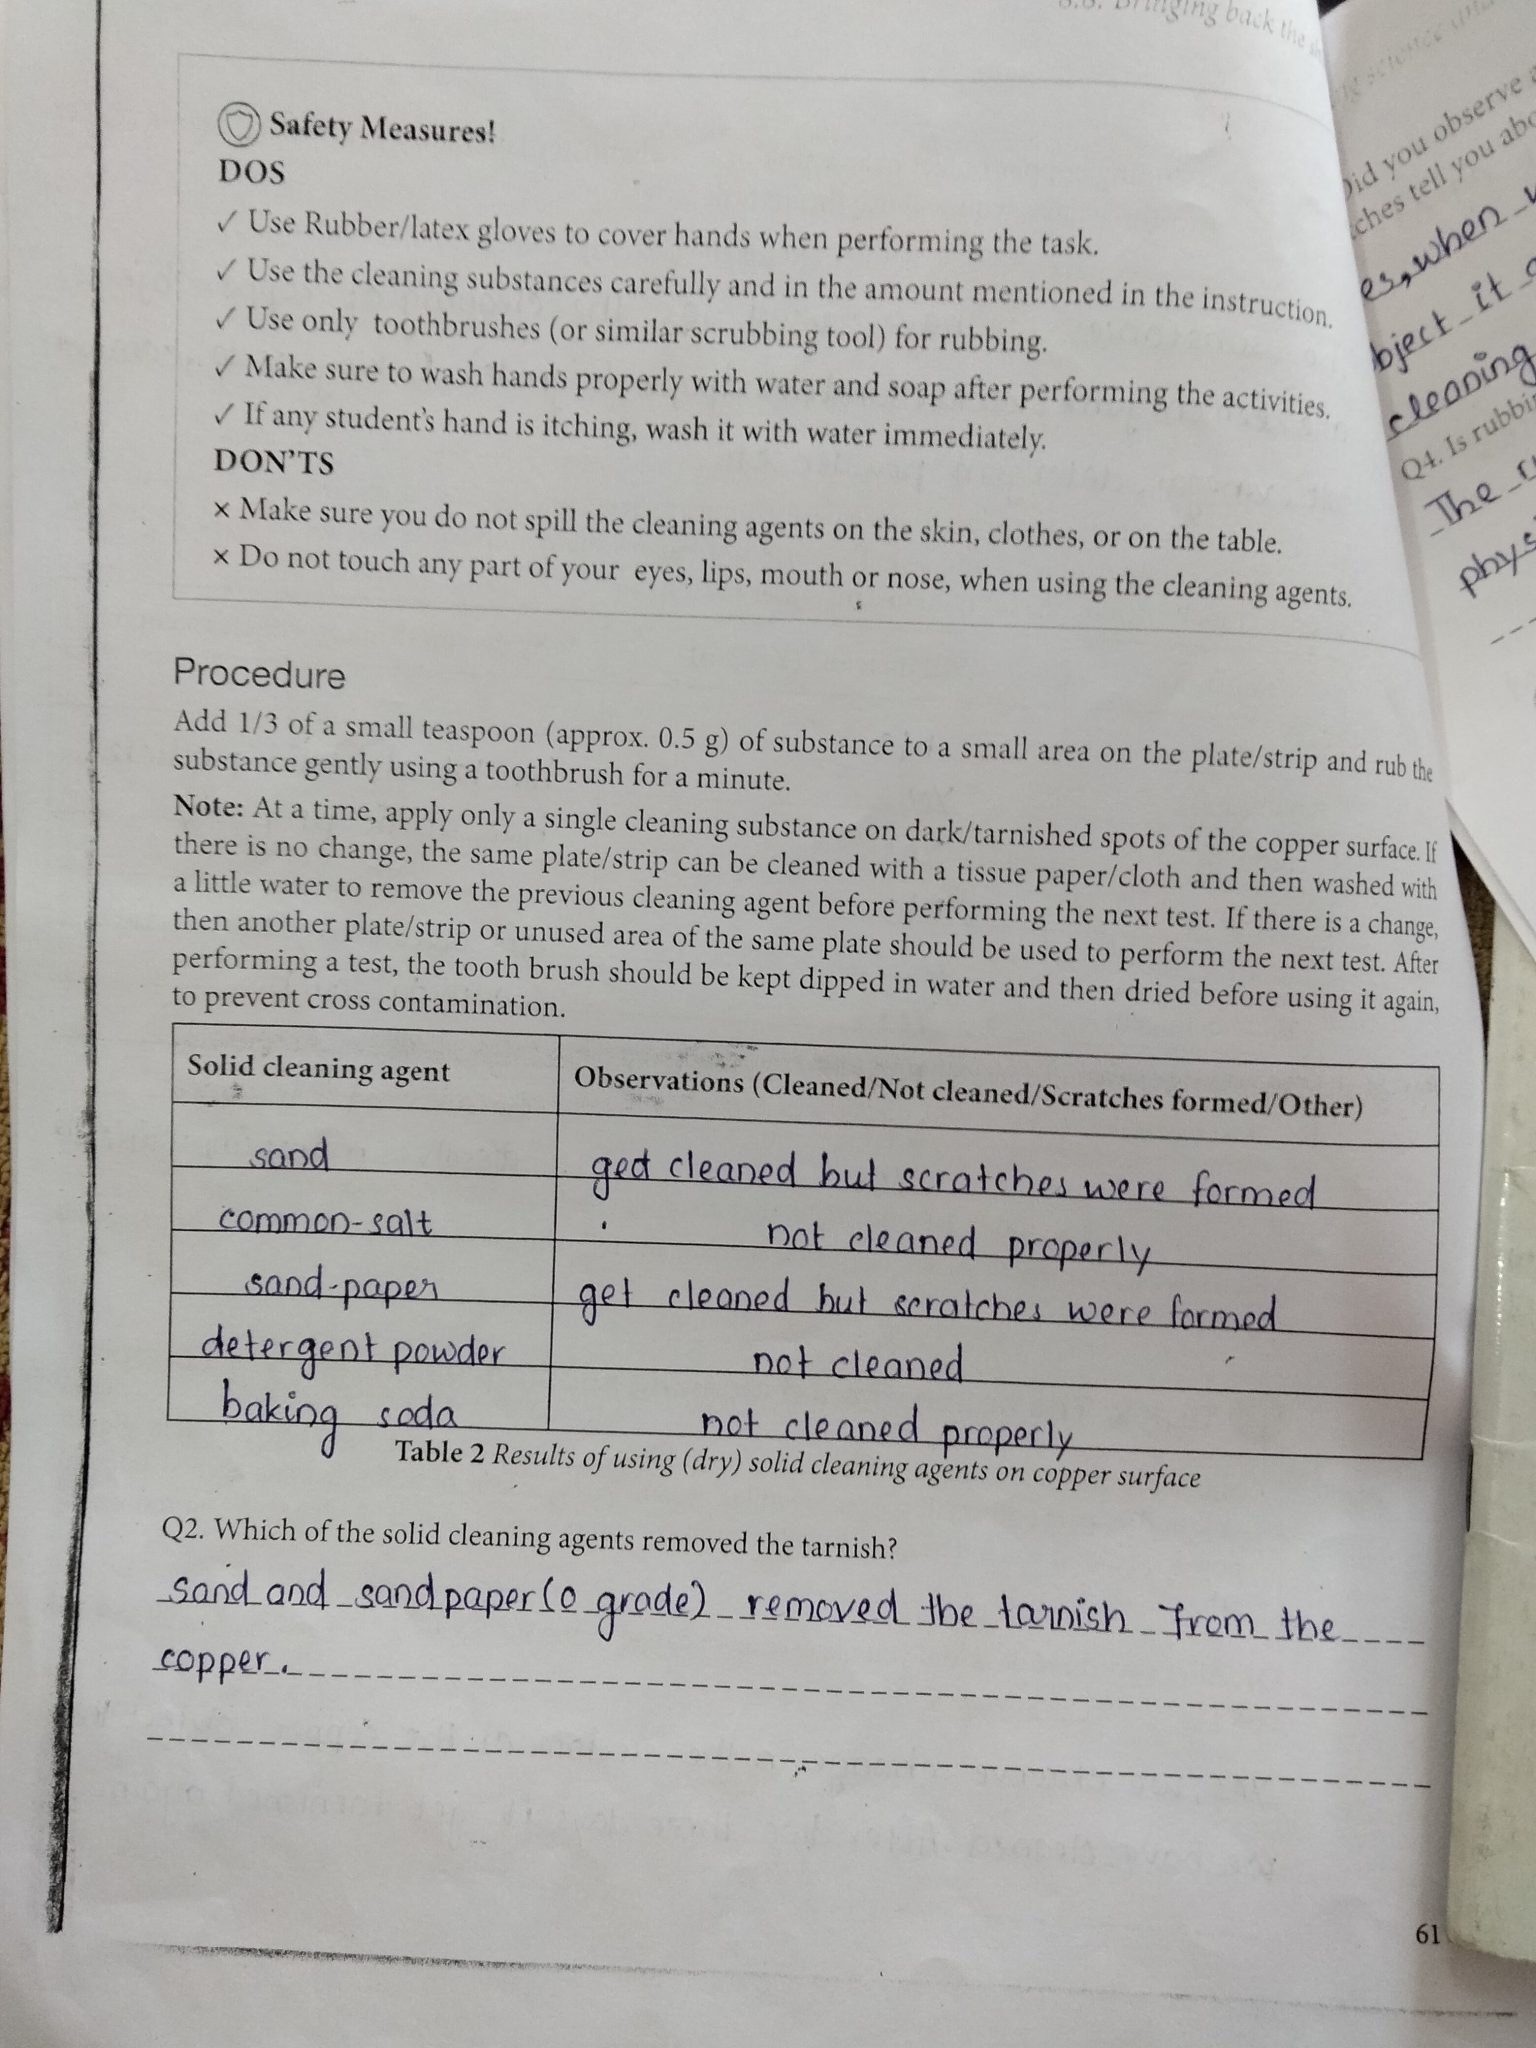 Bringing back the
Safety Measures!
DOS
✓ Use Rubber/latex gloves to cover hands when performing the task.
✓ Use the cleaning substances carefully and in the amount mentioned in the instruction.
✓ Use only toothbrushes (or similar scrubbing tool) for rubbing.
✓ Make sure to wash hands properly with water and soap after performing the activities.
✓ If any student's hand is itching, wash it with water immediately.
DON'TS
× Make sure you do not spill the cleaning agents on the skin, clothes, or on the table.
× Do not touch any part of your eyes, lips, mouth or nose, when using the cleaning agents.
Procedure
Add 1/3 of a small teaspoon (approx. 0.5 g) of substance to a small area on the plate/strip and rub the
substance gently using a toothbrush for a minute.
Note: At a time, apply only a single cleaning substance on dark/tarnished spots of the copper surface. If
there is no change, the same plate/strip can be cleaned with a tissue paper/cloth and then washed with
a little water to remove the previous cleaning agent before performing the next test. If there is a change,
then another plate/strip or unused area of the same plate should be used to perform the next test. After
performing a test, the tooth brush should be kept dipped in water and then dried before using it again,
to prevent cross contamination.
Solid cleaning agent Observations (Cleaned/Not cleaned/Scratches formed/Other)
sand ged cleaned but scratches were formed
common-salt not cleaned properly
sand-paper get cleaned but scratches were formed
detergent powder not cleaned
baking soda not cleaned properly
Table 2 Results of using (dry) solid cleaning agents on copper surface
Q2. Which of the solid cleaning agents removed the tarnish?
sand and sandpaper(0 grade) removed the tarnish from the
copper.
61
Did you observe
tell you
when
it
cleaning
Q4. Is
The